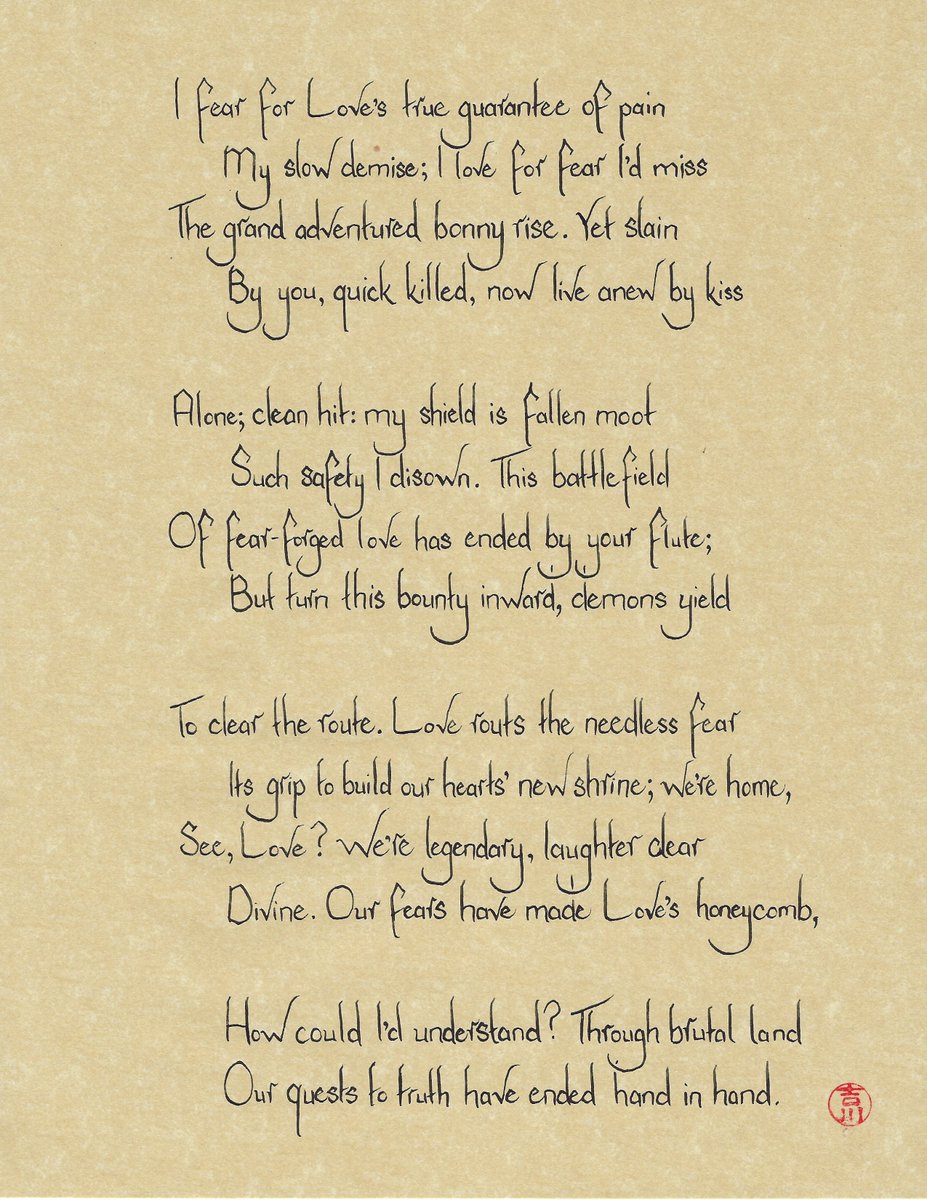 I fear for Love's true guarantee of pain
My slow demise; I love for fear I'd miss
The grand adventured bonny rise. Yet slain
By you, quick killed, now live anew by kiss
Alone; clean hit: my shield is fallen moot
Such safety I disown. This battlefield
Of fear-forged love has ended by your flute;
But turn this bounty inward, demons yield
To clear the route. Love routs the needless fear
Its grip to build our hearts' new shrine; we're home,
See, Love? We're legendary, laughter clear
Divine. Our fears have made Love's honeycomb,
How could I'd understand? Through brutal land
Our quests to truth have ended hand in hand.
吉川